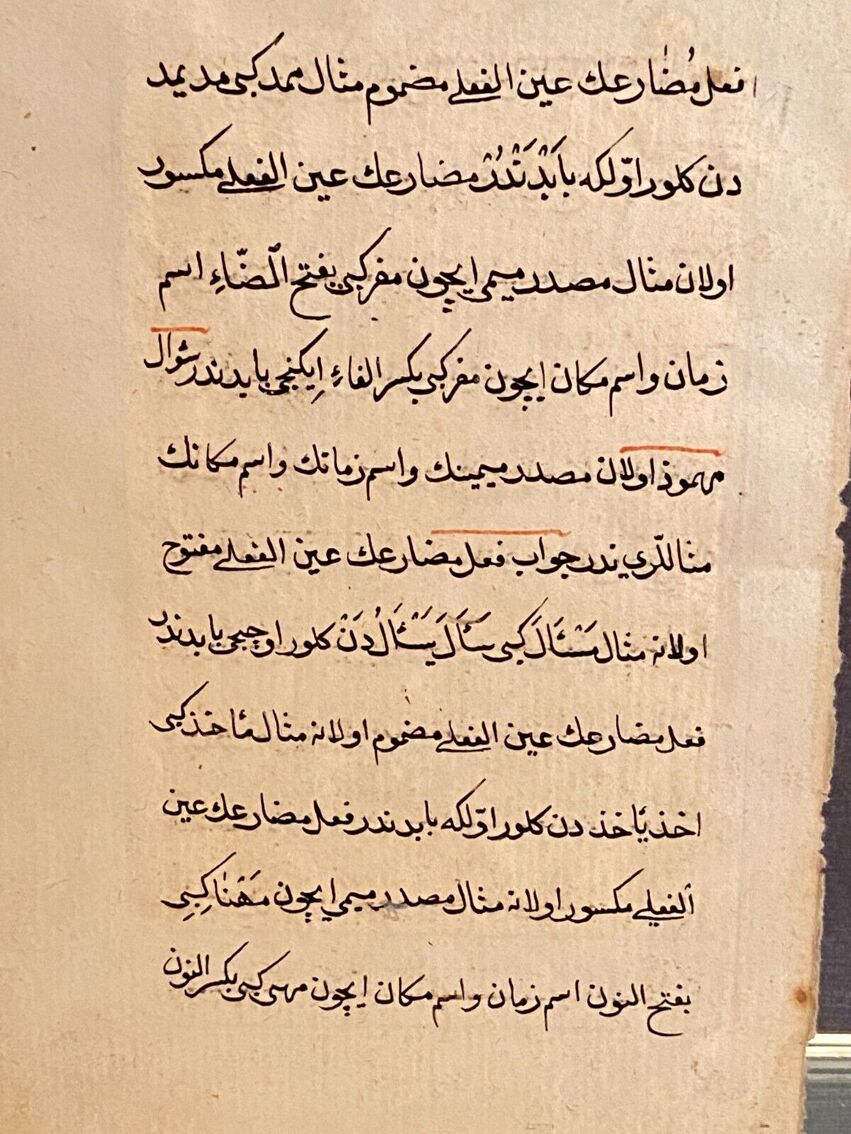 فعل مُضٰارعك عين الفعلى مضموم مثال ممد كبى مد يمد
دن كلور اوّلكه بابْدَنْدُرْ مضارعك عين الفعلى مكسور
اولان مثال مصدر ميمى ايچون مفر كبى بفتح الضّاءِ اسم
زمان و اسم مكان ايچون مفر كبى بكسر الفاءِ اِيكنجى بابدندر سؤال
مهموز اولان مصدر ميمينك و اسم زمانك و اسم مكانك
مثاللّرى ندر جواب فعل مضارعك عين الفعلى مفتوح
اولانه مثال مَسْئَلَ كبى سَئَلَ يَسْئَلُ دَنْ كلور اوچنجى بابدندر
فعل مضارعك عين الفعلى مضموم اولانه مثال مأخذ كبى
اخذ يأخذ دن كلور اوّلكه بابدندر فعل مضارعك عين
الفعلى مكسور اولانه مثال مصدر ميمى ايچون مَهْنَاءْ كِبِى
بفتح النون اسم زمان و اسم مكان ايچون مهنى كبى بكسر النون